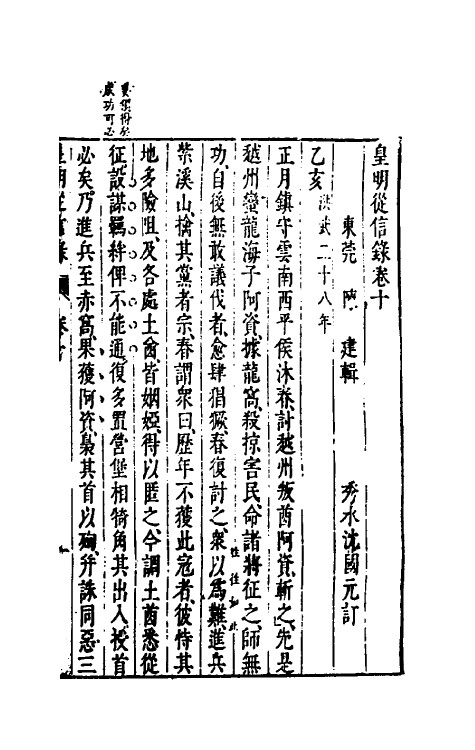 皇明從信錄卷十
東莞 陳 建輯 秀水沈國元訂
乙亥洪武二十八年
正月鎮守雲南西平侯沐春討越州叛酋阿資斬之先是
越州蠻龍海子阿資據龍窩殺掠害民命諸將征之師無
功自後無敢議伐者愈肆猖獗春復討之衆以爲難進兵
往往如此
柴溪山擒其黨者宗春謂衆曰歷年不獲此寇者彼恃其
地多險阻及各處土酋皆姻婭得以匿之今調土酋悉從
征設謀羈絆俾不能通復多置營堡相犄角其出入授首
必矣乃進兵至赤窩果獲阿資梟其首以殉并誅同惡三
得
成功可必
皇明從信錄 卷十